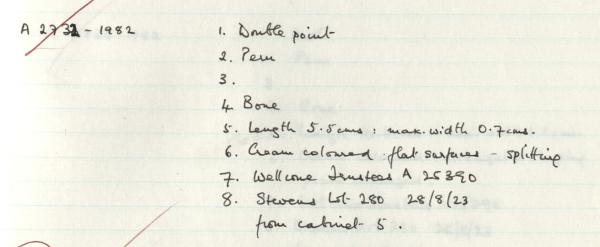 A 2732 - 1982
1. Double point
2. Peru
3.
4. Bone
5. Length 5.5cms : max. width 0.7cms.
6. Cream coloured flat surfaces - splitting
7. Wellcome Trustees A 25390
8. Stevens Lot 280 28/8/23
from cabinet 5.